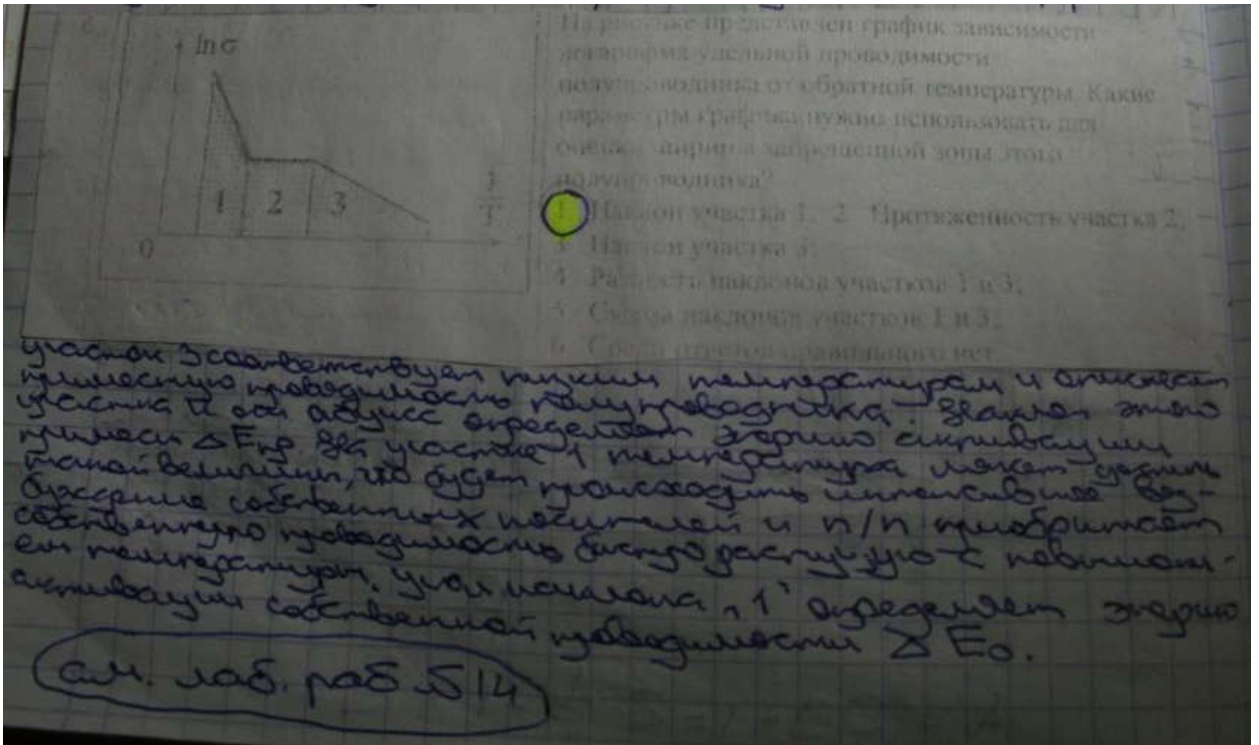 ln σ
1 2 3
1/T
0
На рисунке представлен график зависимости
логарифма удельной проводимости
полупроводника от обратной температуры. Какие
параметры графика нужно использовать для
оценки ширины запрещенной зоны этого
полупроводника?
1 Наклон участка 1; 2 Протяженность участка 2;
3 Наклон участка 3;
4 Разность наклонов участков 1 и 3;
5 Сумма наклонов участков 1 и 3;
6 Среди ответов правильного нет
участок 3 соответствует низким температурам и описывает
примесную проводимость полупроводника. Наклон этого
участка к оси абсцисс определяет энергию активации
примеси ΔEпр. На участке 1 температура может достичь
такой величины, что будет происходить интенсивное воз-
буждение собственных носителей и п/п приобритает
собственную проводимость быстро растущую с повышени-
ем температуры. угол наклона "1" определяет энергию
активации собственной проводимости ΔE0.
см. лаб. раб №14